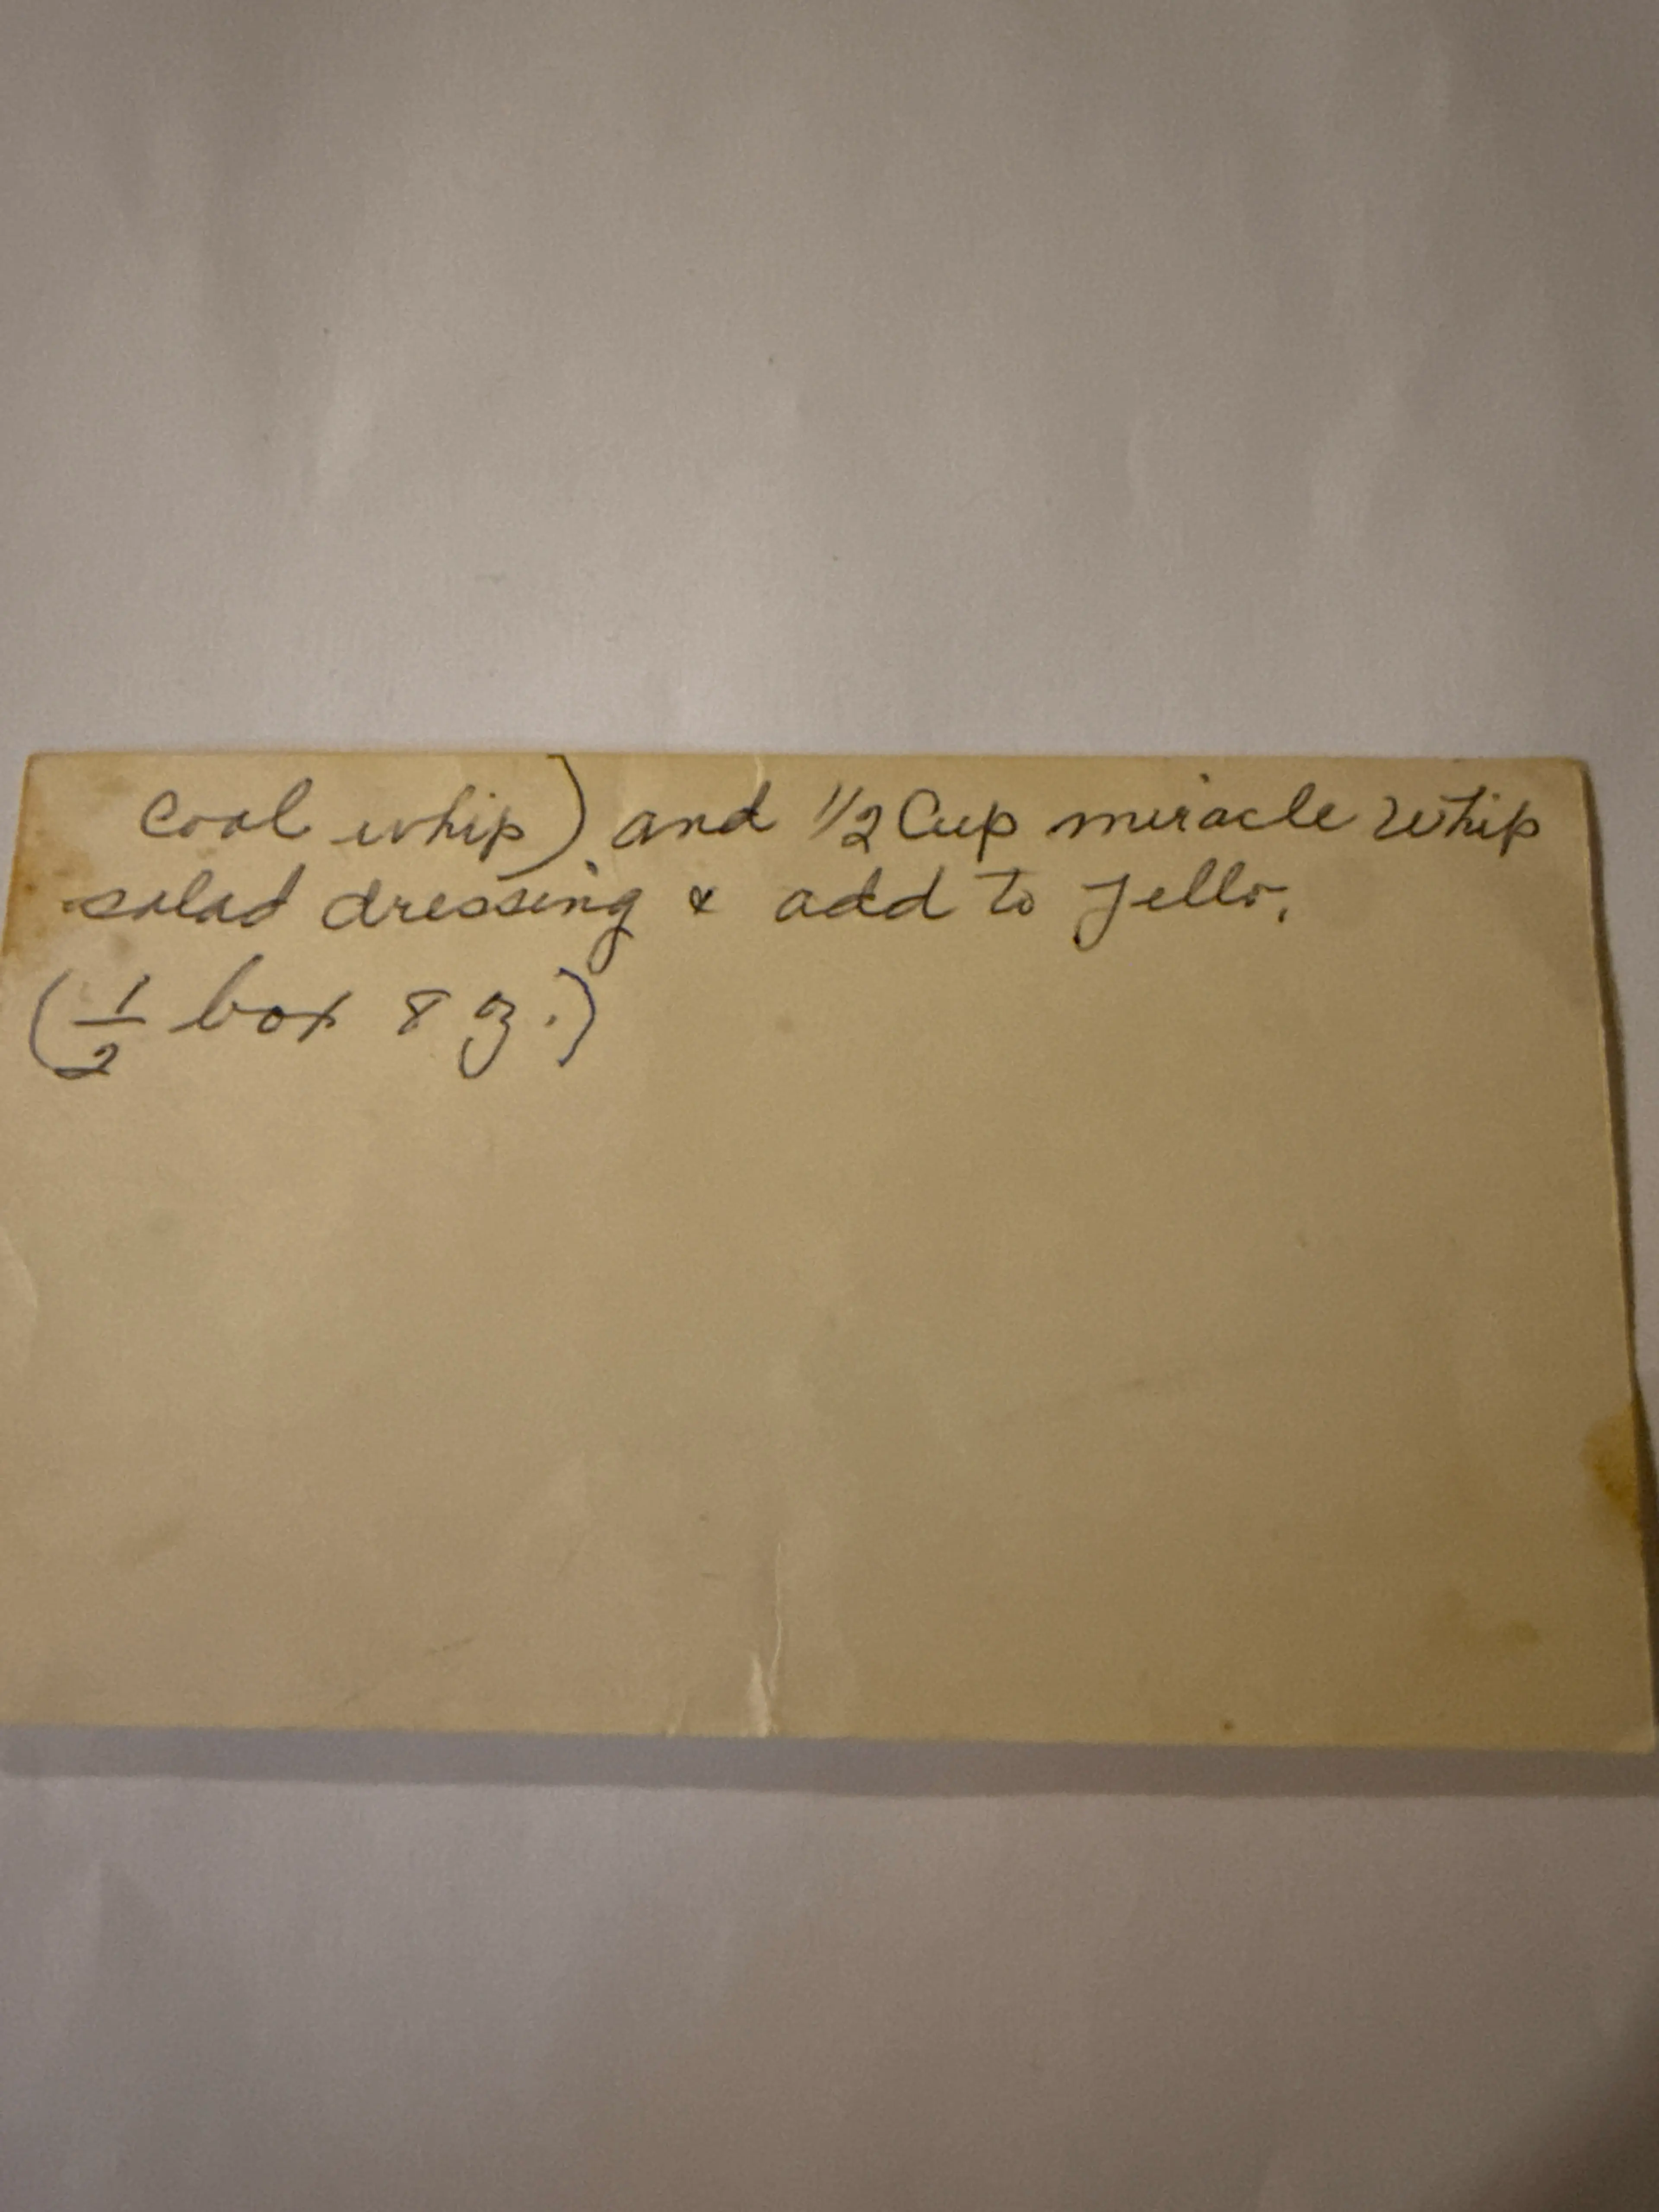 cool whip) and 1/2 Cup miracle whip
salad dressing & add to Jello.
(1/2 box 8 oz.)